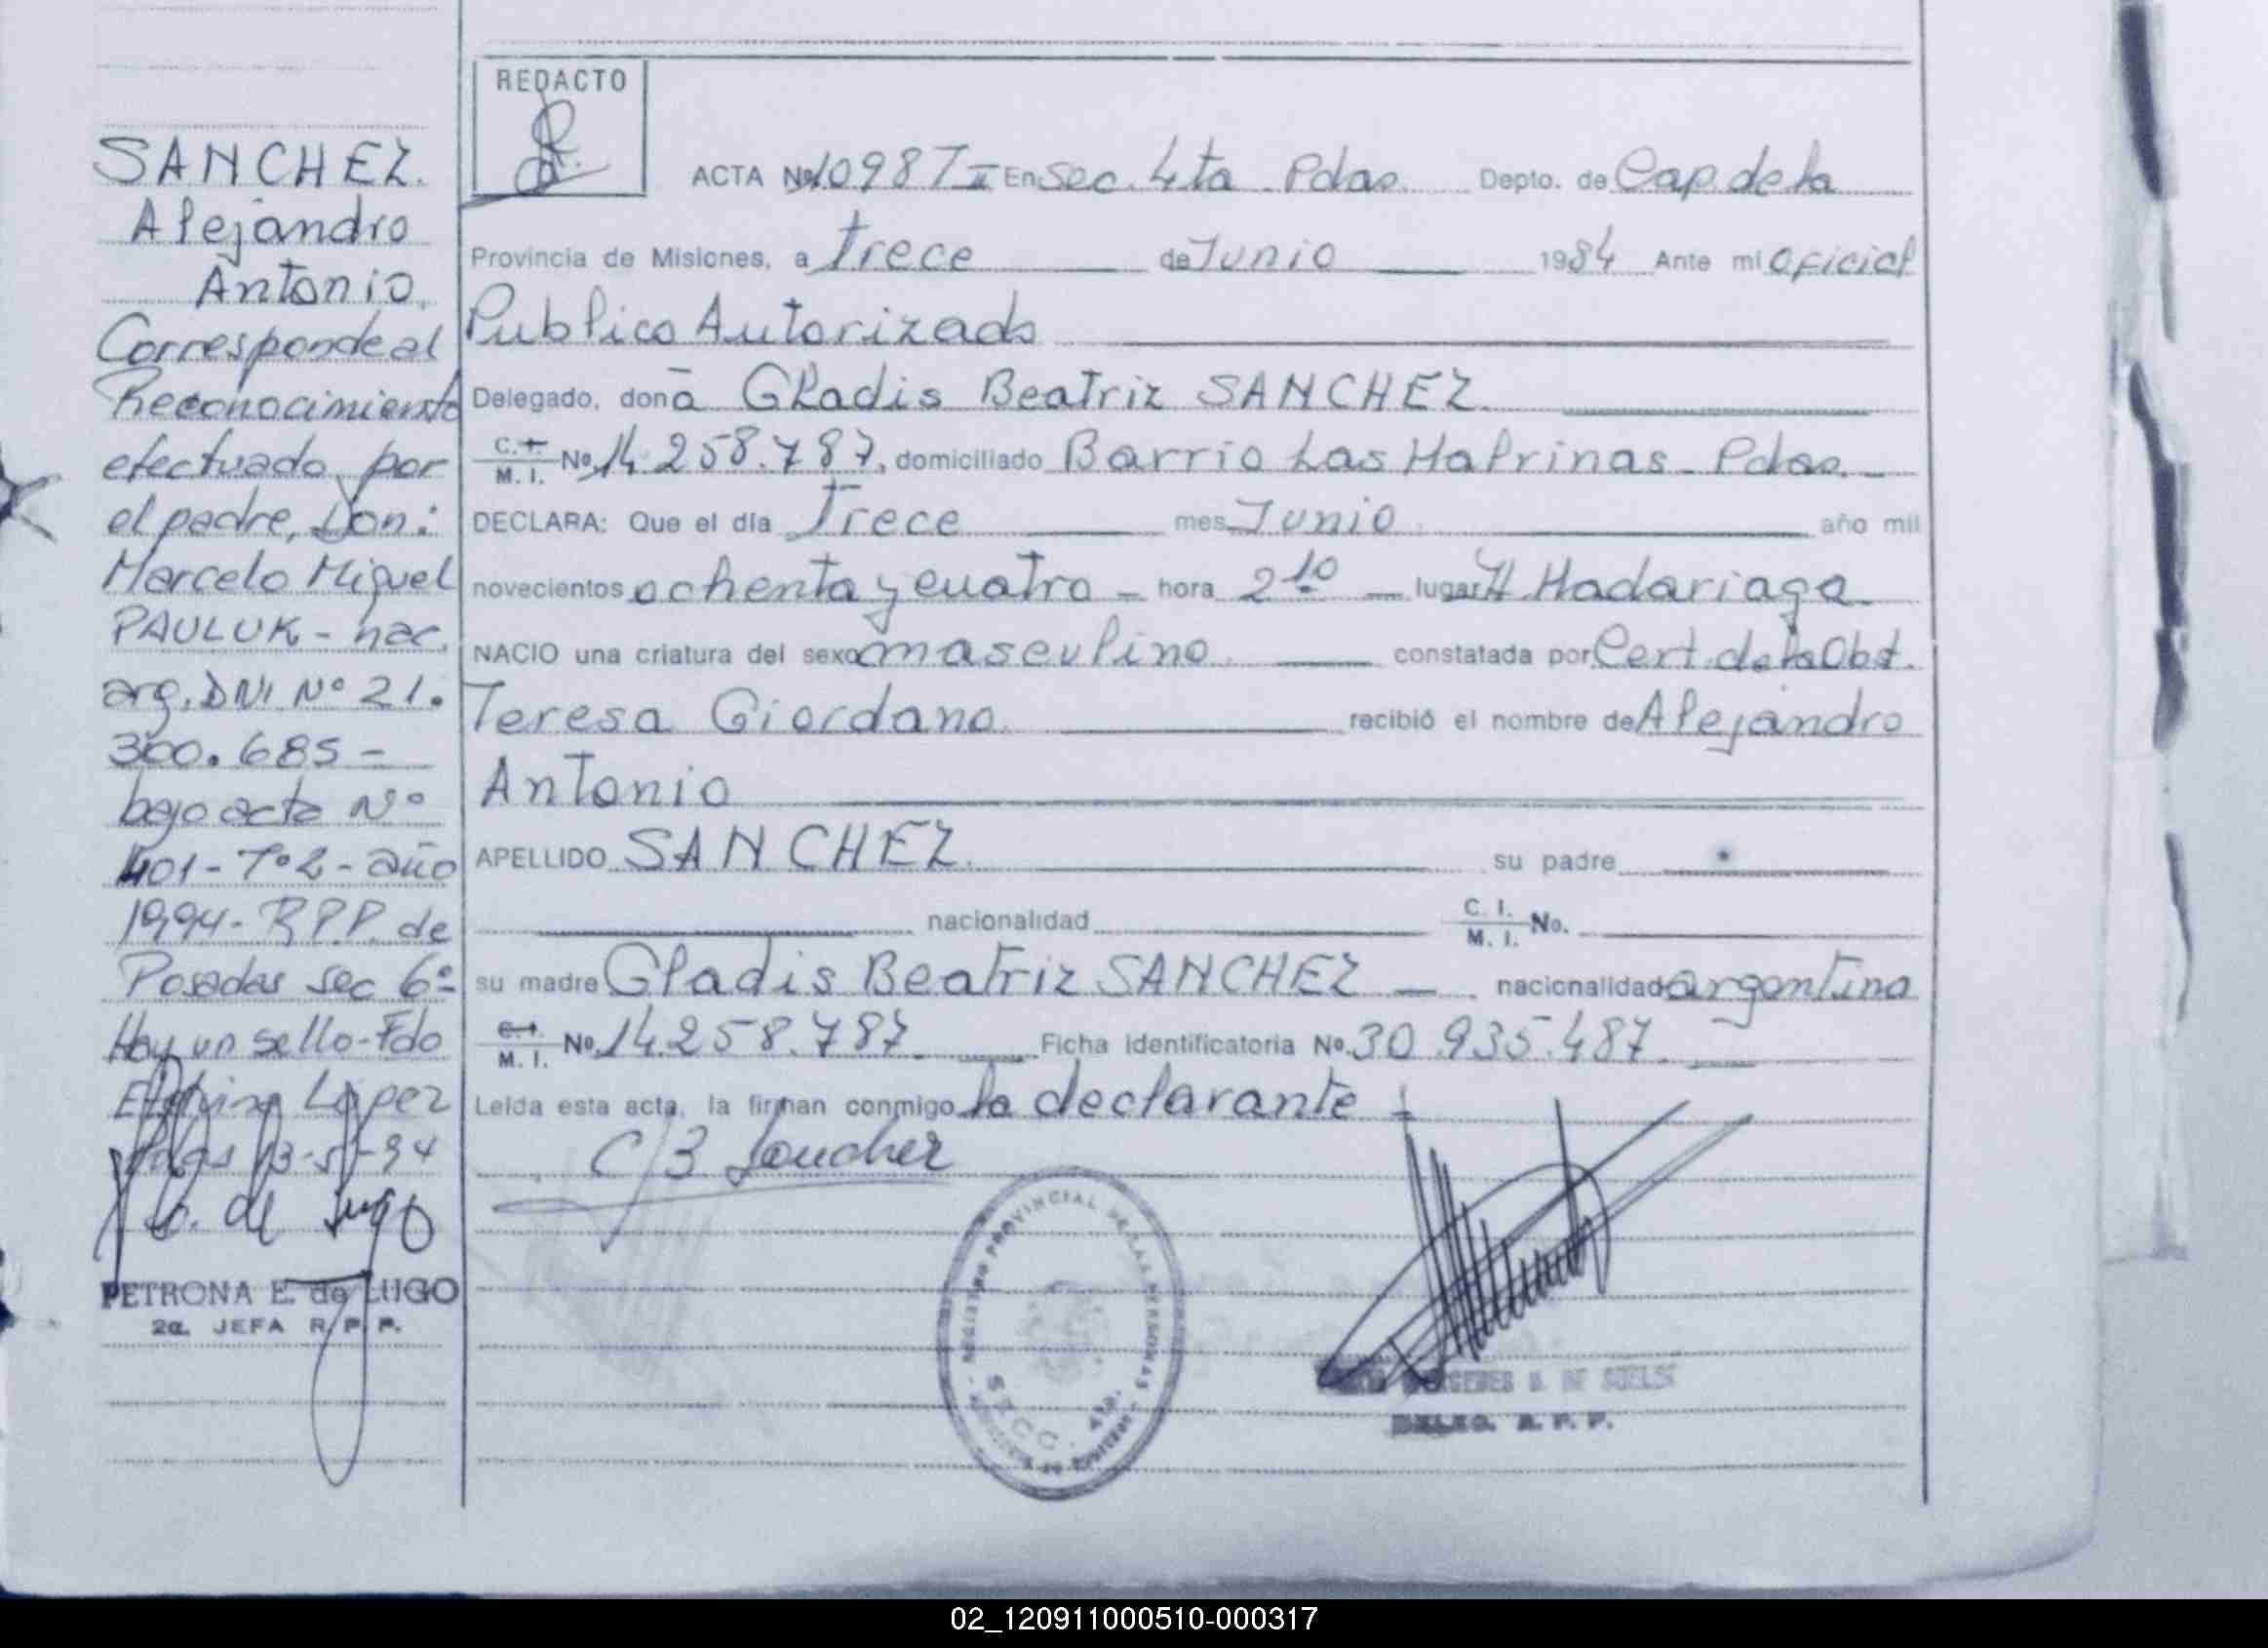 SANCHEZ.
Alejandro
Antonio.
Corresponde al
Reconocimiento
efectuado por
el padre, Don:
Marcelo Miguel
PAULUK - nac.
arg. DNI Nº 21.
300.685 -
bajo acta Nº
1401 - Tº 2 - año
1994 - R.P.P. de
Posadas sec 6º
Hay un sello - Fdo
López
E. de Lugo
PETRONA E. de LUGO
2a. JEFA R. P. P.
REDACTO
ACTA Nº 10987 II En Sec. 4ta Pdas. Depto. de Cap. de la
Provincia de Misiones, a Trece de Junio 1984 Ante mi Oficial
Publico Autorizado
Delegado, donã Gladis Beatriz SANCHEZ.
C. I. M. I. Nº 14.258.787, domiciliado Barrio Las Malvinas - Pdas. -
DECLARA: Que el día Trece mes Junio año mil
novecientos ochenta y cuatro - hora 2 10 - lugar H. Madariaga
NACIO una criatura del sexo masculino constatada por Cert. de la Obst.
Teresa Giordano recibió el nombre de Alejandro
Antonio
APELLIDO SANCHEZ. su padre
nacionalidad C. I. M. I. No.
su madre Gladis Beatriz SANCHEZ - nacionalidad argentina
C. I. M. I. Nº 14.258.787. Ficha identificatoria Nº 30.935.487.
Leída esta acta, la firman conmigo la declarante
REGISTRO PROVINCIAL DE LAS PERSONAS
SECC. 4ta.
DELEG. R. P. P.
02_120911000510-000317